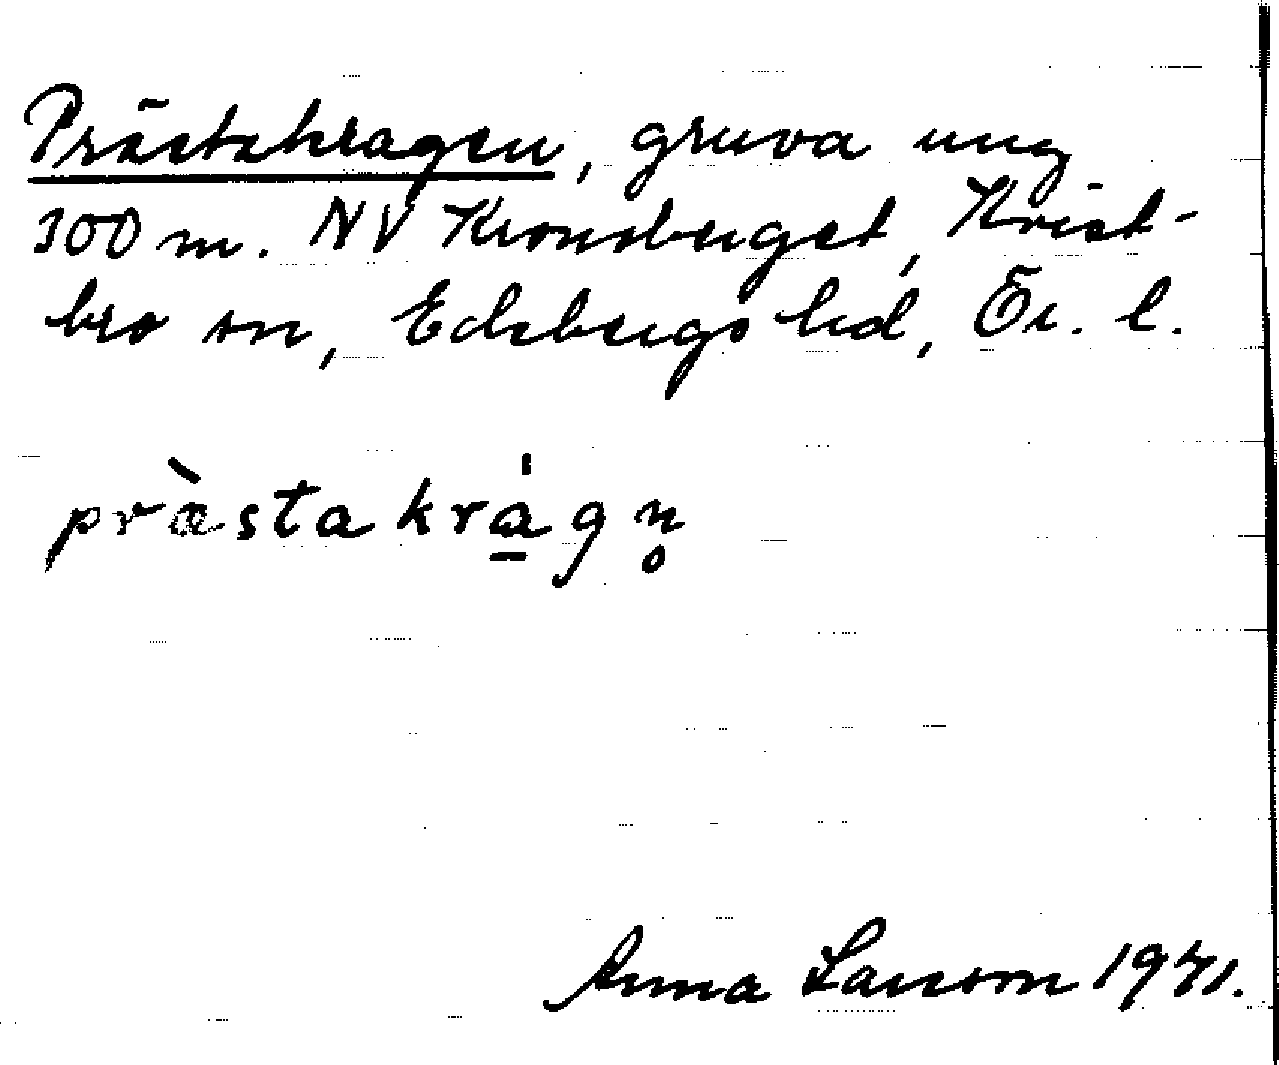 Prästakragen, gruva ung
300 m. NV Kronoberget, Kvist-
bro sn, Edsbergs hd, Ör. l.
præ̀stakrágn̥
Anna Larsson 1971.